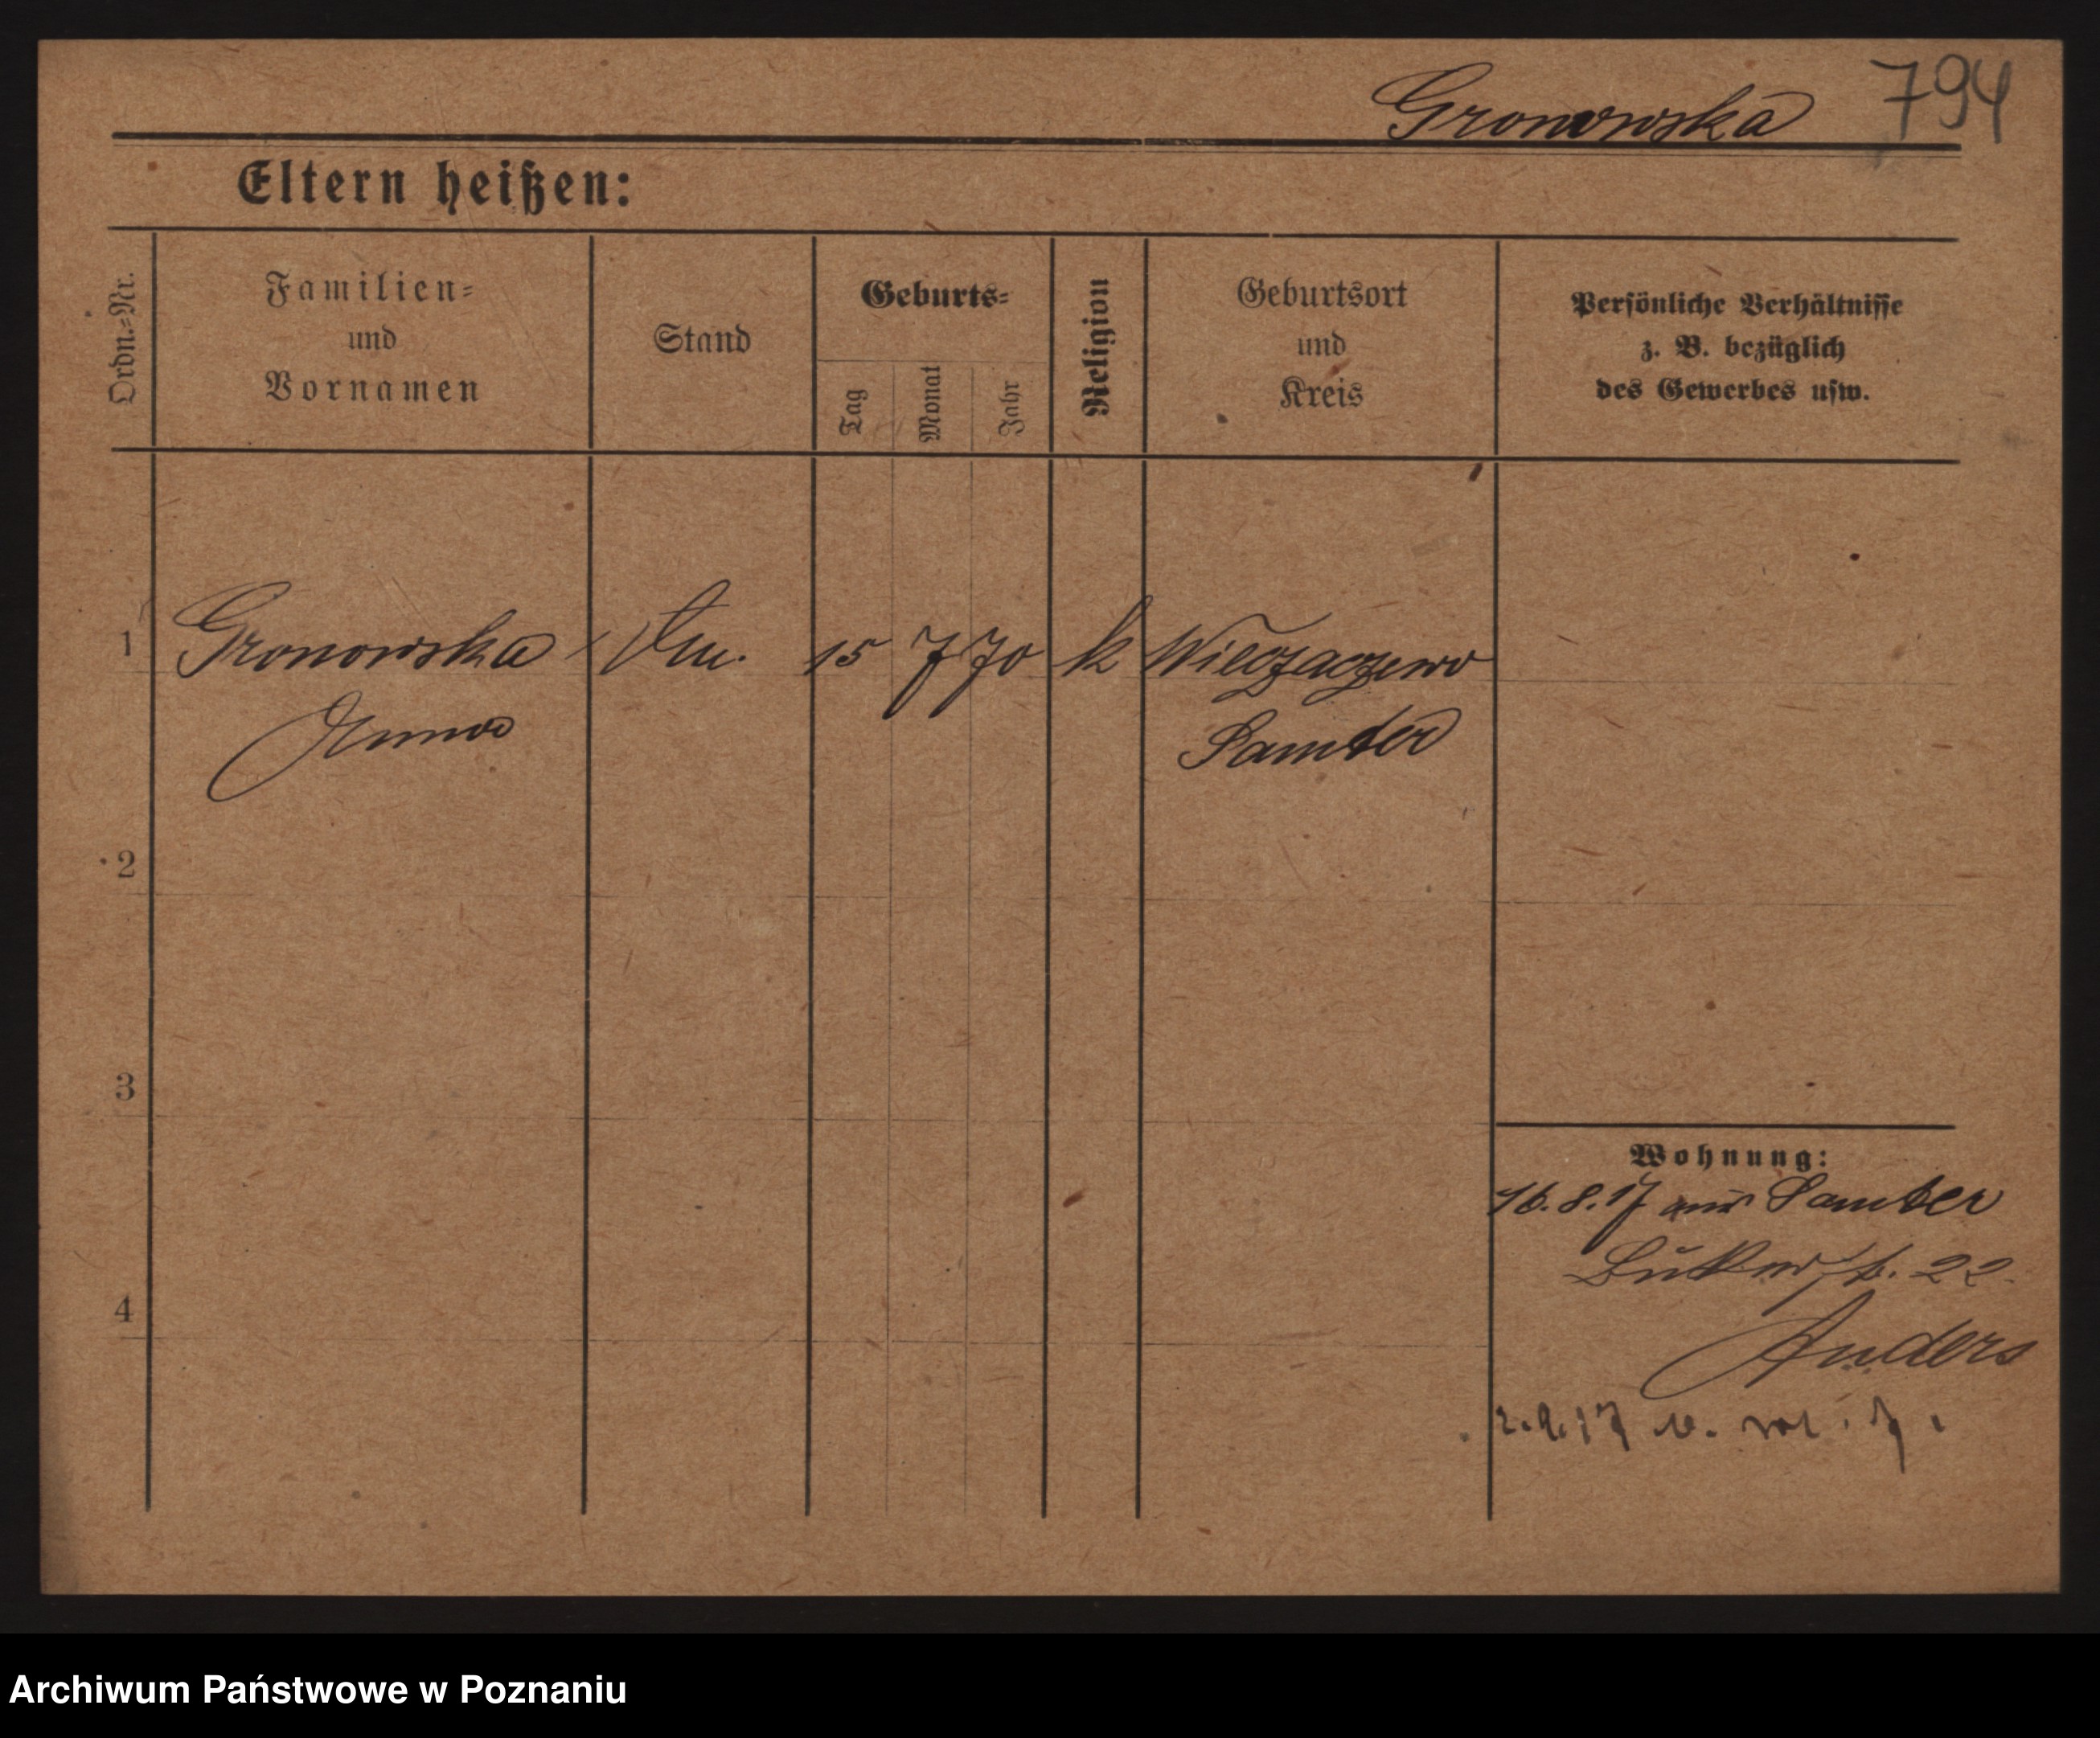 Gronowska 794
Eltern heißen:
Ordn.=Nr.
Familien=
und
Vornamen
Stand
Geburts=
Tag
Monat
Jahr
Religion
Geburtsort
und
Kreis
Persönliche Verhältnisse
z. B. bezüglich
des Gewerbes usw.
1 Gronowska 15 7 70 k
Samter
2
3
Wohnung:
16.8.17 aus Samter
22.
4
Anders
2.9.17
Archiwum Państwowe w Poznaniu